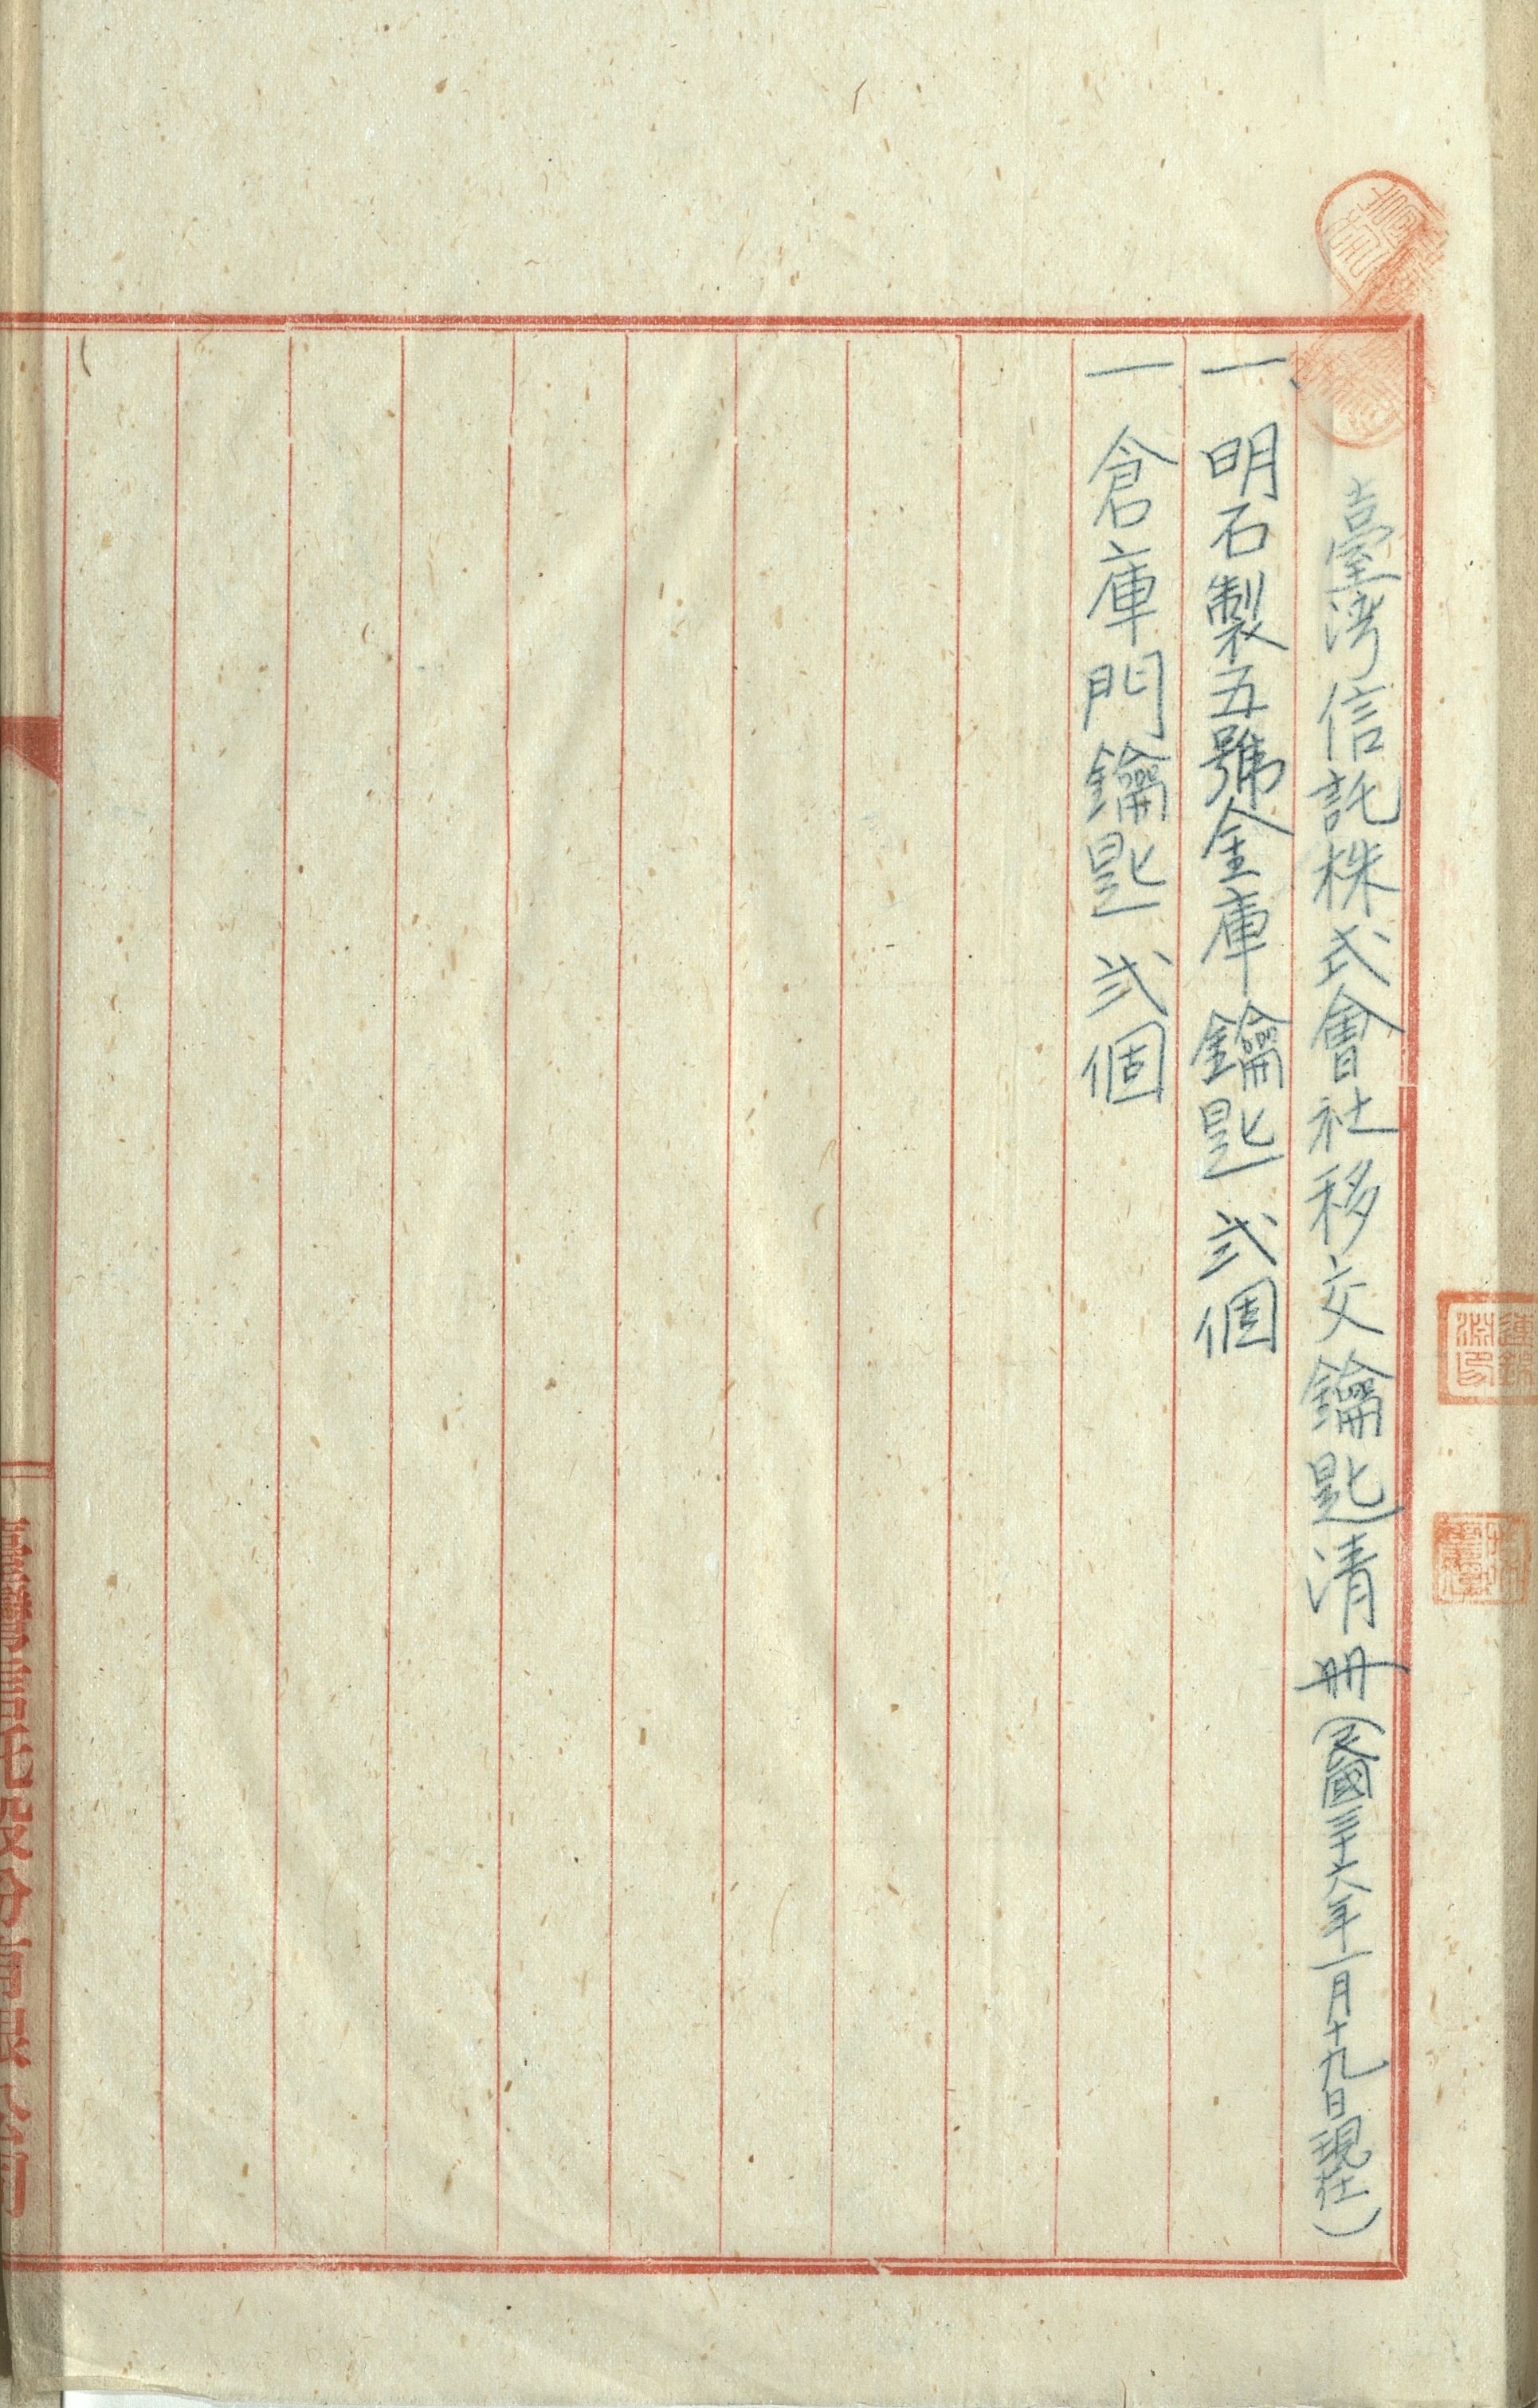 臺湾信託株式會社移交鑰匙清册(民國三十六年一月十九日現在)
一、明石製五號金庫鑰匙 弍個
一 倉庫門鑰匙 弍個
臺灣信託股份有限公司